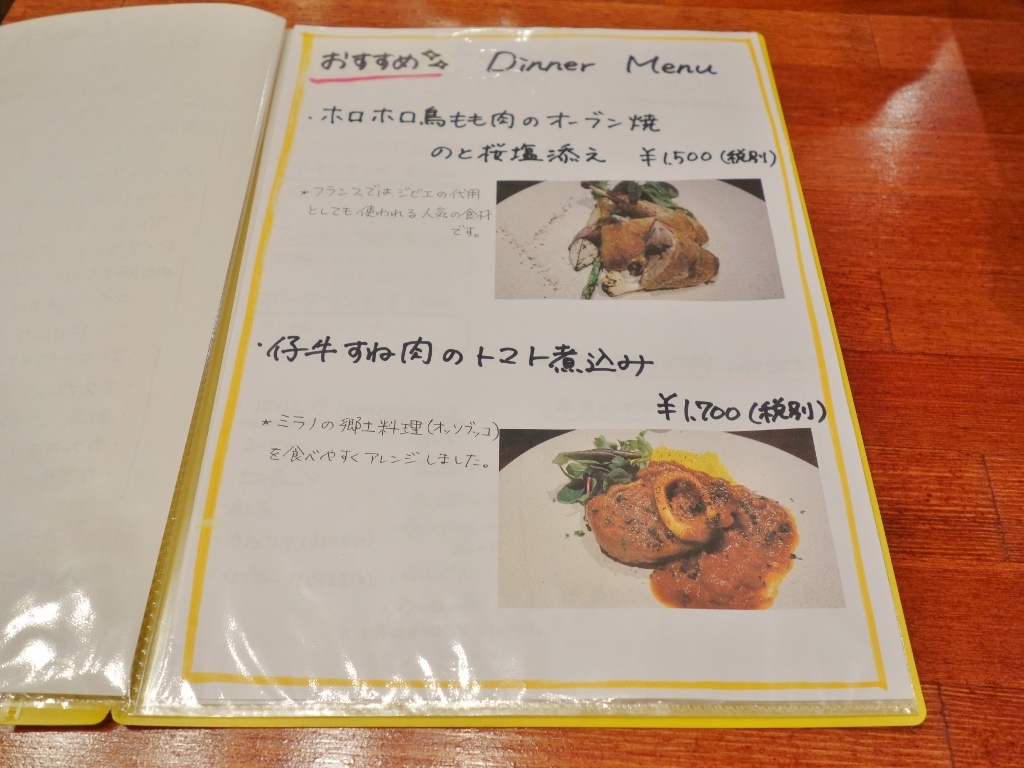 おすすめ Dinner Menu
・ホロホロ鳥もも肉のオーブン焼
のと桜塩添え ¥1,500(税別)
*フランスでは、ジビエの代用
としても使われる人気の食材
です。
・仔牛すね肉のトマト煮込み
¥1,700(税別)
*ミラノの郷土料理(オッソブッコ)
を食べやすくアレンジしました。